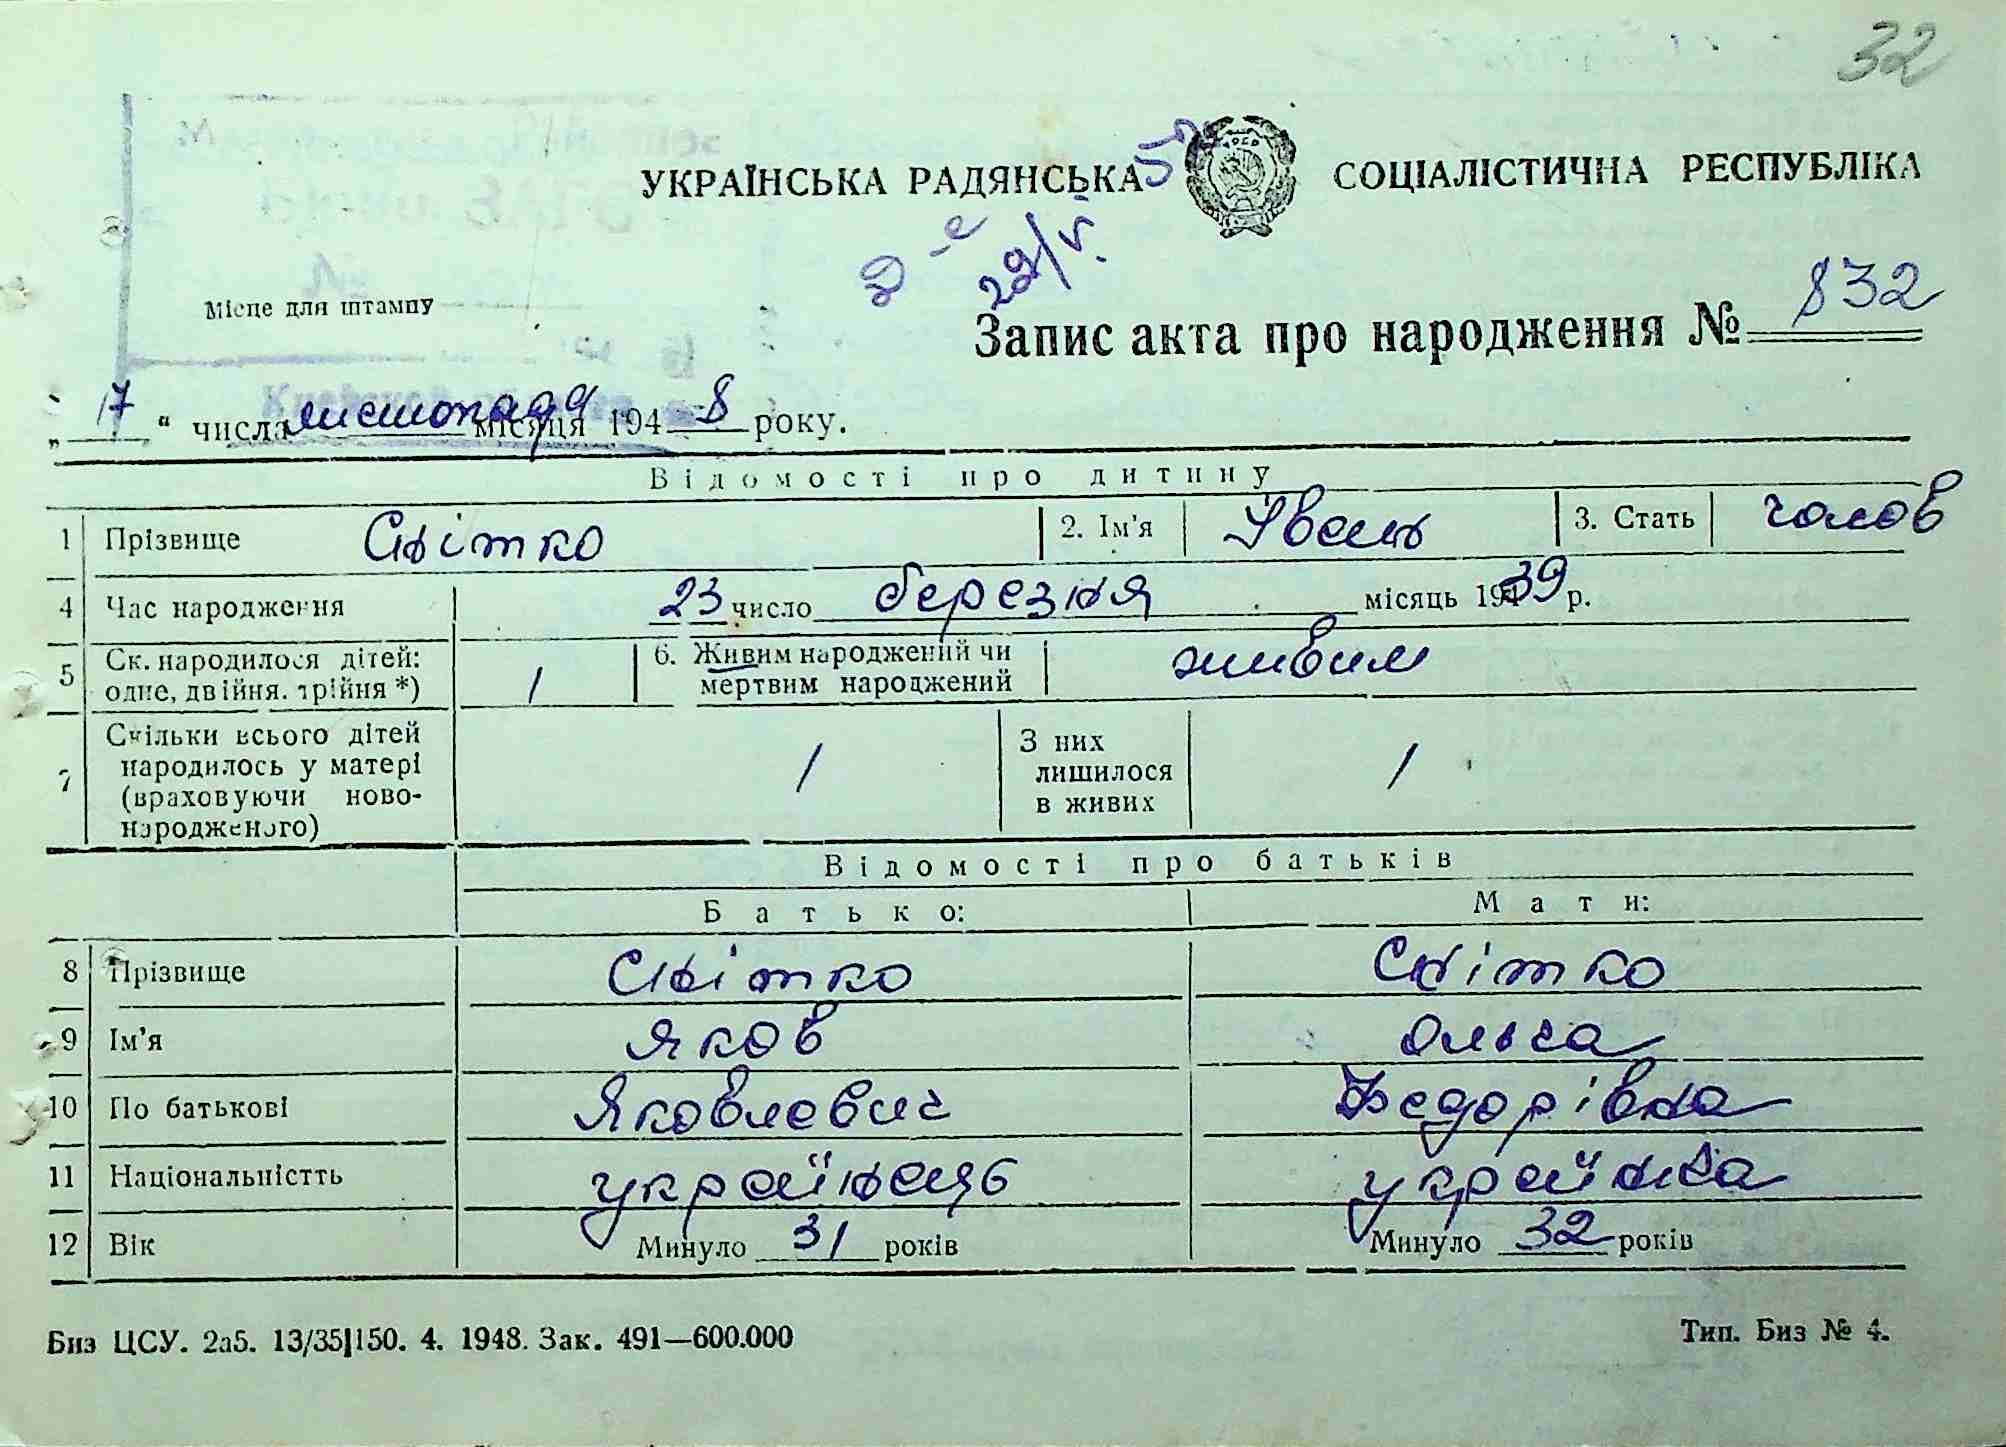 32
УКРАЇНСЬКА РАДЯНСЬКА СОЦІАЛІСТИЧНА РЕСПУБЛІКА
Д-е
29/V
Місце для штампу
Запис акта про народження № 832
„17“ числа листопада місяця 1948 року.
Відомості про дитину
1 Прізвище Снітко 2. Ім'я Івань 3. Стать чолов
4 Час народження 23 число березня місяць 1939 р.
5 Ск. народилося дітей: одне, двійня. трійня *) 1 6. Живим народжений чи мертвим народжений живим
7 Скільки всього дітей народилось у матері (враховуючи новонародженого) 1 З них лишилося в живих 1
Відомості про батьків
Батько: Мати:
8 Прізвище Снітко Снітко
9 Ім'я Яков Ольга
10 По батькові Яковлевич Федорівна
11 Національністть українець українка
12 Вік Минуло 31 років Минуло 32 років
Биз ЦСУ. 2а5. 13/35|150. 4. 1948. Зак. 491—600.000 Тип. Биз № 4.